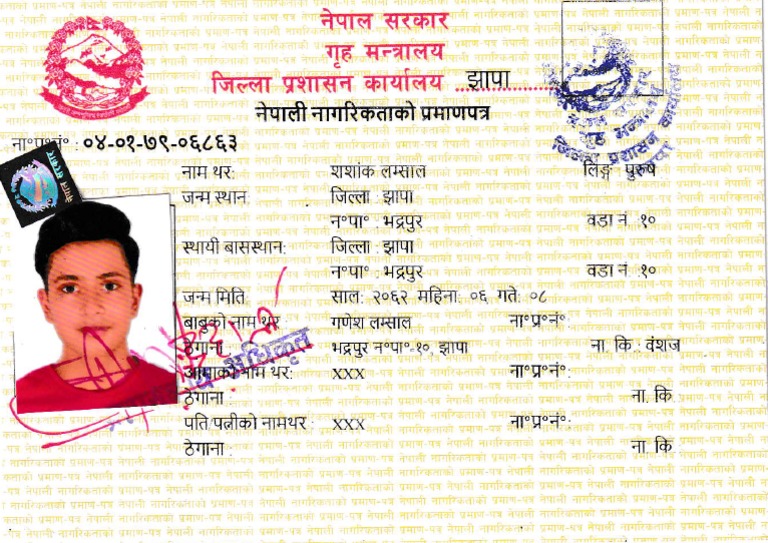 नेपाल सरकार
गृह मन्त्रालय
जिल्ला प्रशासन कार्यालय झापा
नेपाली नागरिकताको प्रमाणपत्र
ना॰प्र॰नं॰ : ०४-०१-७९-०६८६३
नाम थर: शशांक लम्साल लिङ्ग पुरुष
जन्म स्थान: जिल्ला : झापा
न॰पा॰ : भद्रपुर वडा नं : १०
स्थायी बासस्थान: जिल्ला : झापा
न॰पा॰ : भद्रपुर वडा नं : १०
जन्म मिति: साल: २०६२ महिना: ०६ गते: ०८
बाबुको नाम थर: गणेश लम्साल ना॰प्र॰नं॰:
ठेगाना: भद्रपुर न॰पा॰-१०, झापा ना. कि.: वंशज
आमाको नाम थर: xxx ना॰प्र॰नं॰:
ठेगाना : ना. कि
पति पत्नीको नामथर : xxx ना॰प्र॰नं॰:
ठेगाना : ना. कि